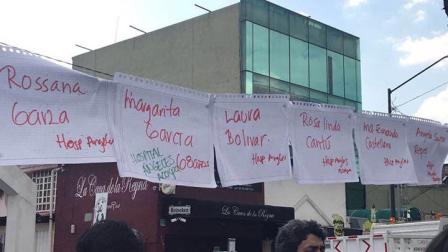 Rossana
Garza
Hosp Angeles
Margarita
García
HOSPITAL
ANGELES
ACOXPA
68 años
Laura
Bolivar.
Hosp Angeles
Rosalinda
Cantú
Hosp Angeles
Ma Fernando
Castellanos
Hosp Angeles
Reyes
La Casa de la Reyna
Heineken
La Casa de la Reyna